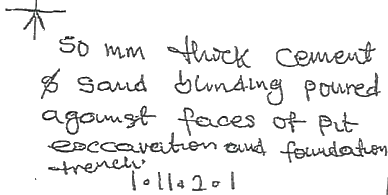 50 mm thick cement
& sand blinding poured
against faces of pit
exccavation and foundation
trench.
1.11.2.1